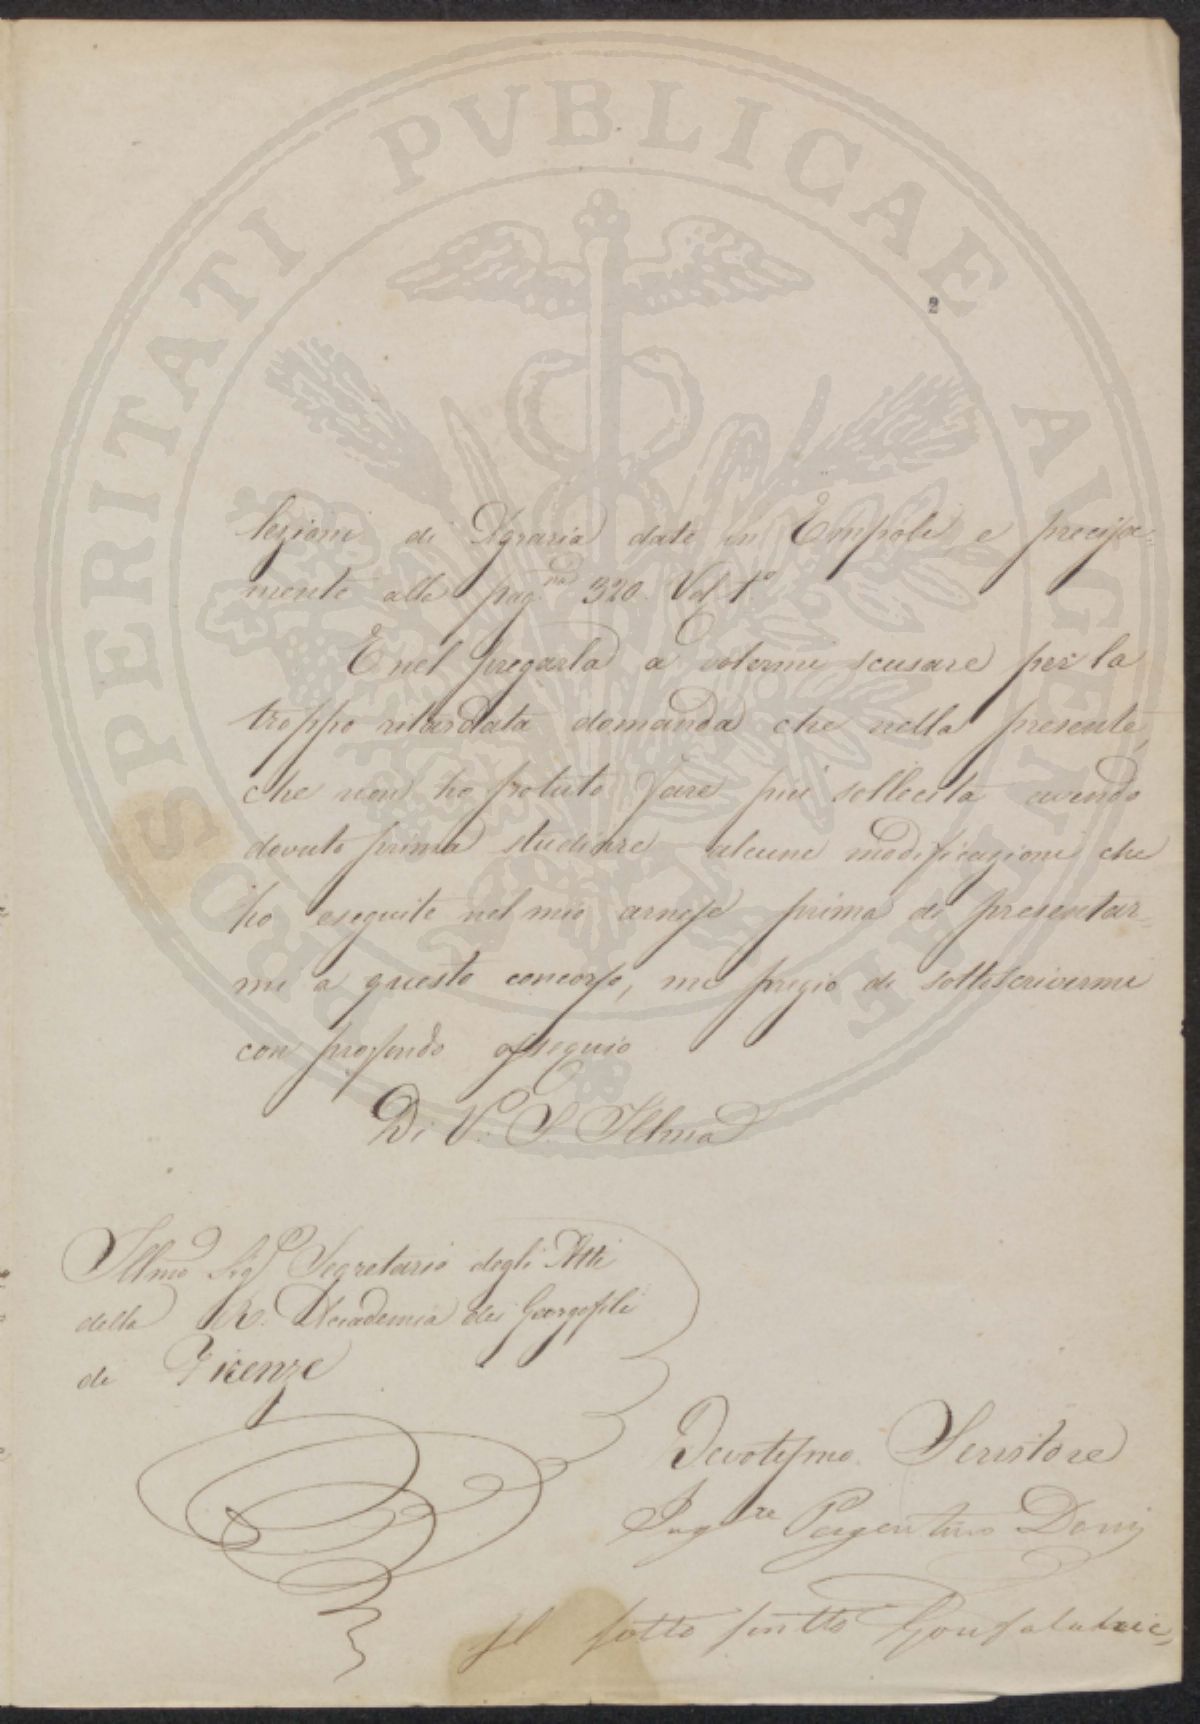 PROSPERITATI PVBLICAE AVGENDAE
2
lezioni di Agraria date in Empoli e precisa=
mente alla pag.na 320. Vol. 1.o
E nel pregarla a volermi scusare per la
troppo ritardata domanda che nella presente,
che non ho potuto fare più sollecita avendo
dovuto prima studiare alcune modificazioni che
ho eseguite nel mio arnese prima di presentar=
mi a questo concorso, mi pregio di sottoscrivermi
con profondo ossequio
Di V. S. Illma
Illmo Sigr Segretario degli Atti
della R. Accademia dei Georgofili
di Firenze
Devotissmo Servitore
Ingre Pergentino Doni
Il sotto scritto Gonfaloniere